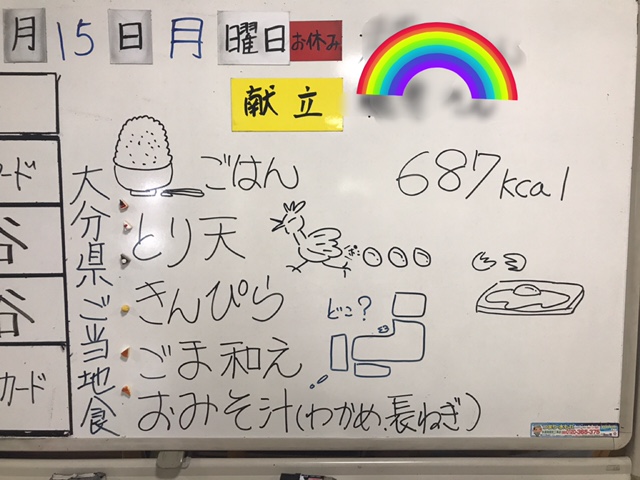 月 15 日 月 曜日 お休み
献立
ごはん 687kcal
大分県ご当地食
とり天
きんぴら
どこ?
ごま和え
おみそ汁(わかめ、長ねぎ)
ード
谷
谷
カード